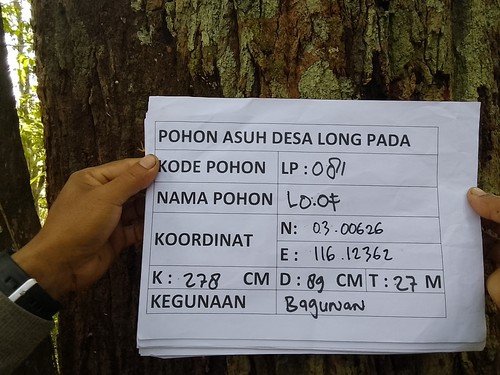 POHON ASUH DESA LONG PADA
KODE POHON LP : 0811
NAMA POHON LO.OF
KOORDINAT
N: 03.00626
E : 116.12362
K : 278 CM D : 89 CM T : 27 M
KEGUNAAN Bagunan